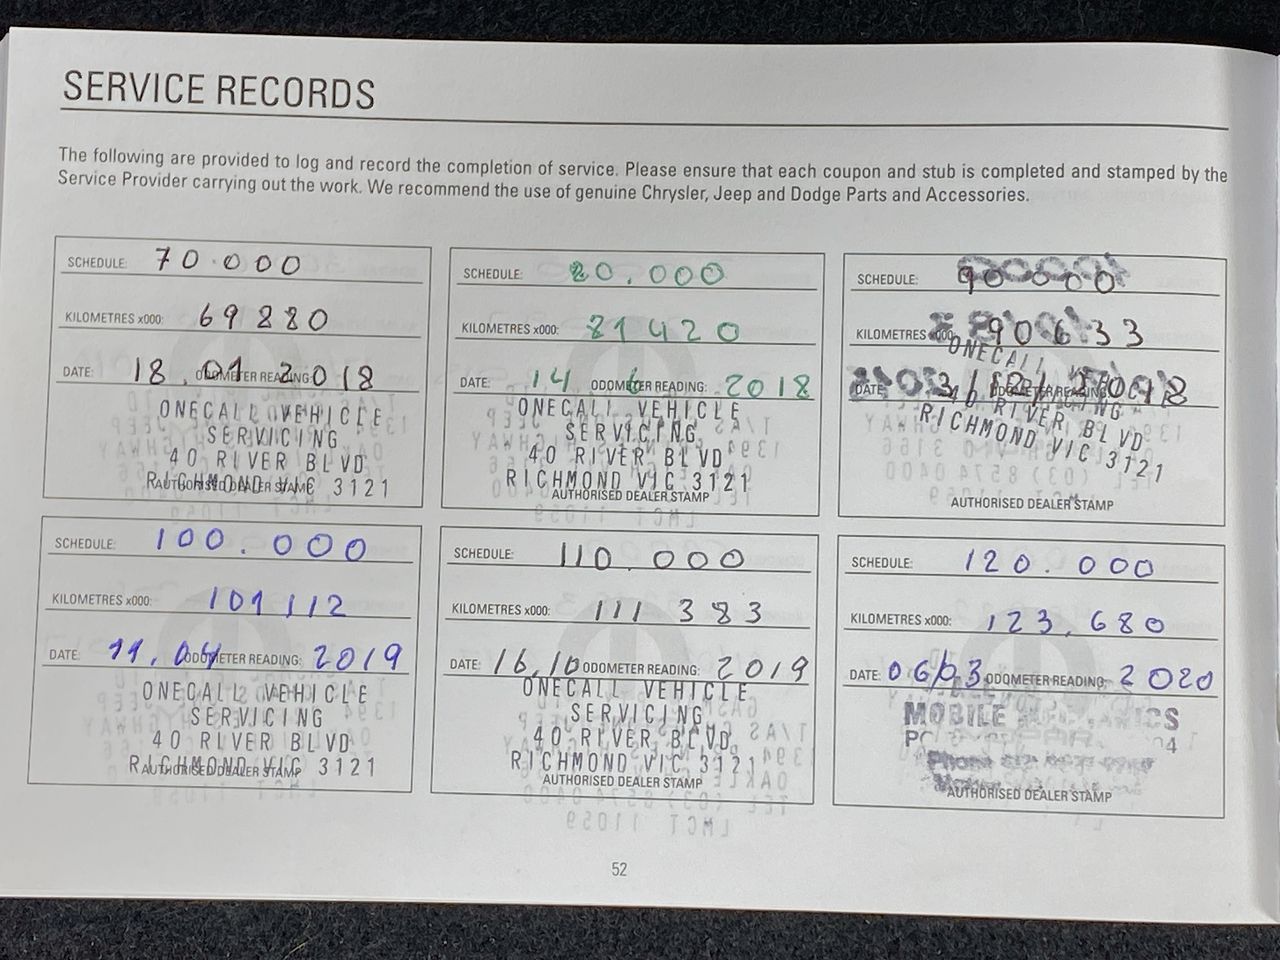 SERVICE RECORDS
The following are provided to log and record the completion of service. Please ensure that each coupon and stub is completed and stamped by the
Service Provider carrying out the work. We recommend the use of genuine Chrysler, Jeep and Dodge Parts and Accessories.
SCHEDULE: 70.000
KILOMETRES x000: 69880
DATE: 18.01 ODOMETER READING: 2018
ONECALL VEHICLE
SERVICING
40 RIVER BLVD
RICHMOND VIC 3121
AUTHORISED DEALER STAMP
SCHEDULE: 80.000
KILOMETRES x000: 81420
DATE: 14 6 ODOMETER READING: 2018
ONECALL VEHICLE
SERVICING
40 RIVER BLVD
RICHMOND VIC 3121
AUTHORISED DEALER STAMP
SCHEDULE: 90.000
KILOMETRES x000: 90633
DATE: ODOMETER READING: 2018
ONECALL
40 RIVER BLVD
RICHMOND VIC 3121
AUTHORISED DEALER STAMP
SCHEDULE: 100.000
KILOMETRES x000: 101112
DATE: 11.04 ODOMETER READING: 2019
ONECALL VEHICLE
SERVICING
40 RIVER BLVD
RICHMOND VIC 3121
AUTHORISED DEALER STAMP
SCHEDULE: 110.000
KILOMETRES x000: 111 383
DATE: 16.10 ODOMETER READING: 2019
ONECALL VEHICLE
SERVICING
40 RIVER BLVD
RICHMOND VIC 3121
AUTHORISED DEALER STAMP
SCHEDULE: 120.000
KILOMETRES x000: 123.680
DATE: 06/03 ODOMETER READING: 2020
MOBILE
AUTHORISED DEALER STAMP
52